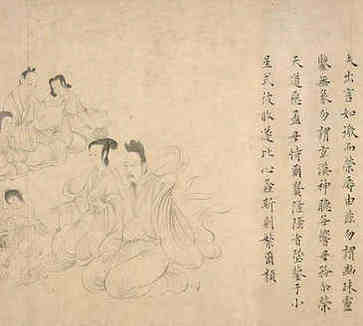 夫出言如微而榮辱由茲勿謂幽昧靈
鑒無象勿謂玄漠神聽無響無矜爾榮
天道惡盈無恃爾貴隆隆者墜鑒于小
星戒彼攸遂比心螽斯則繁爾類